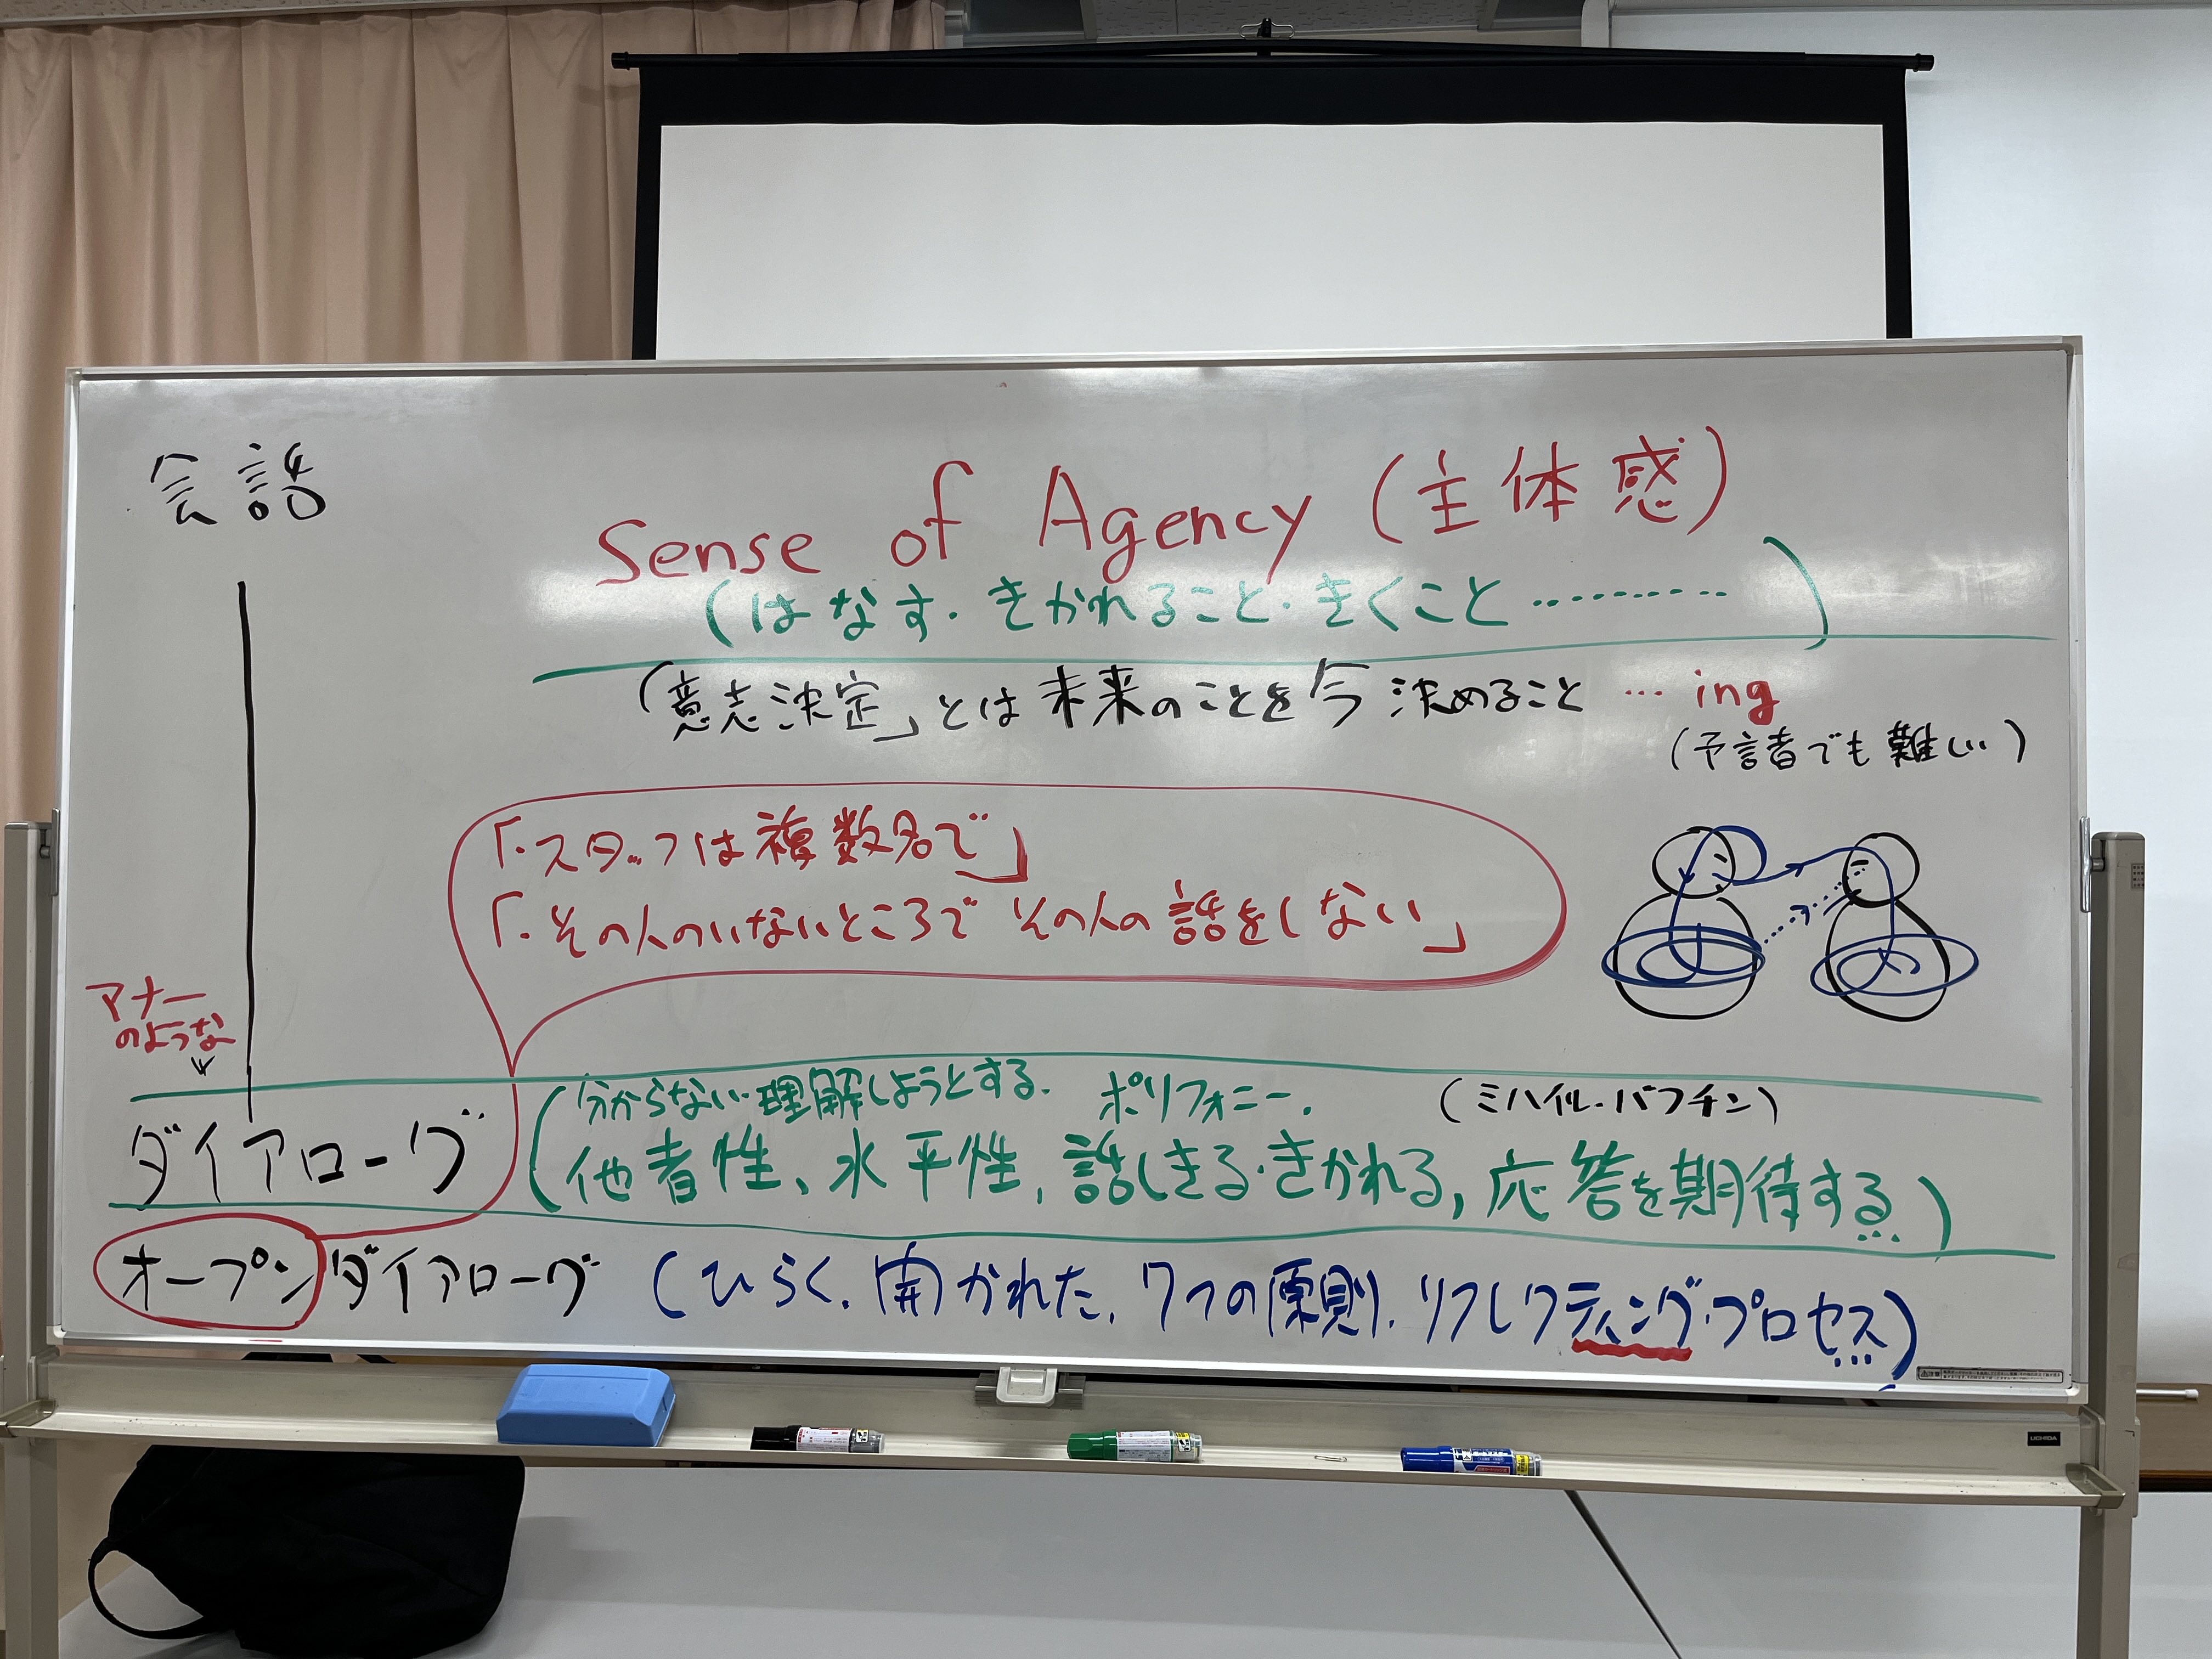 会話
Sense of Agency (主体感)
(はなす・きかれること・きくこと…………)
(意志決定」とは未来のことを今決めること … ing
(予言者でも難しい)
「・スタッフは複数名で」
「・その人のいないところで その人の話をしない」
マナー
のような
(分からない・理解しようとする. ポリフォニー. (ミハイル・バフチン)
ダイアローグ 他者性、水平性, 話しきる・きかれる, 応答を期待する…)
オープンダイアローグ (ひらく. 開かれた. 7つの原則. リフレクティング・プロセス…)
UCHIDA